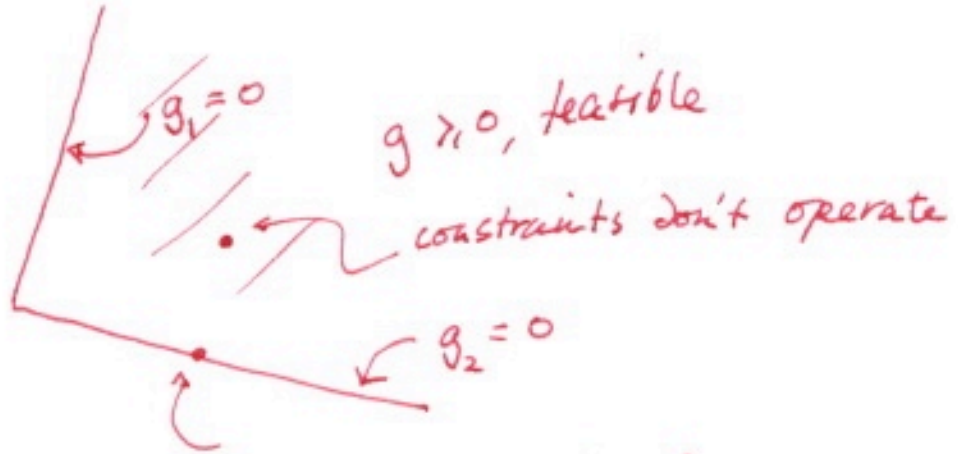 g₁ = 0
g ≥ 0, feasible
constraints don't operate
g₂ = 0